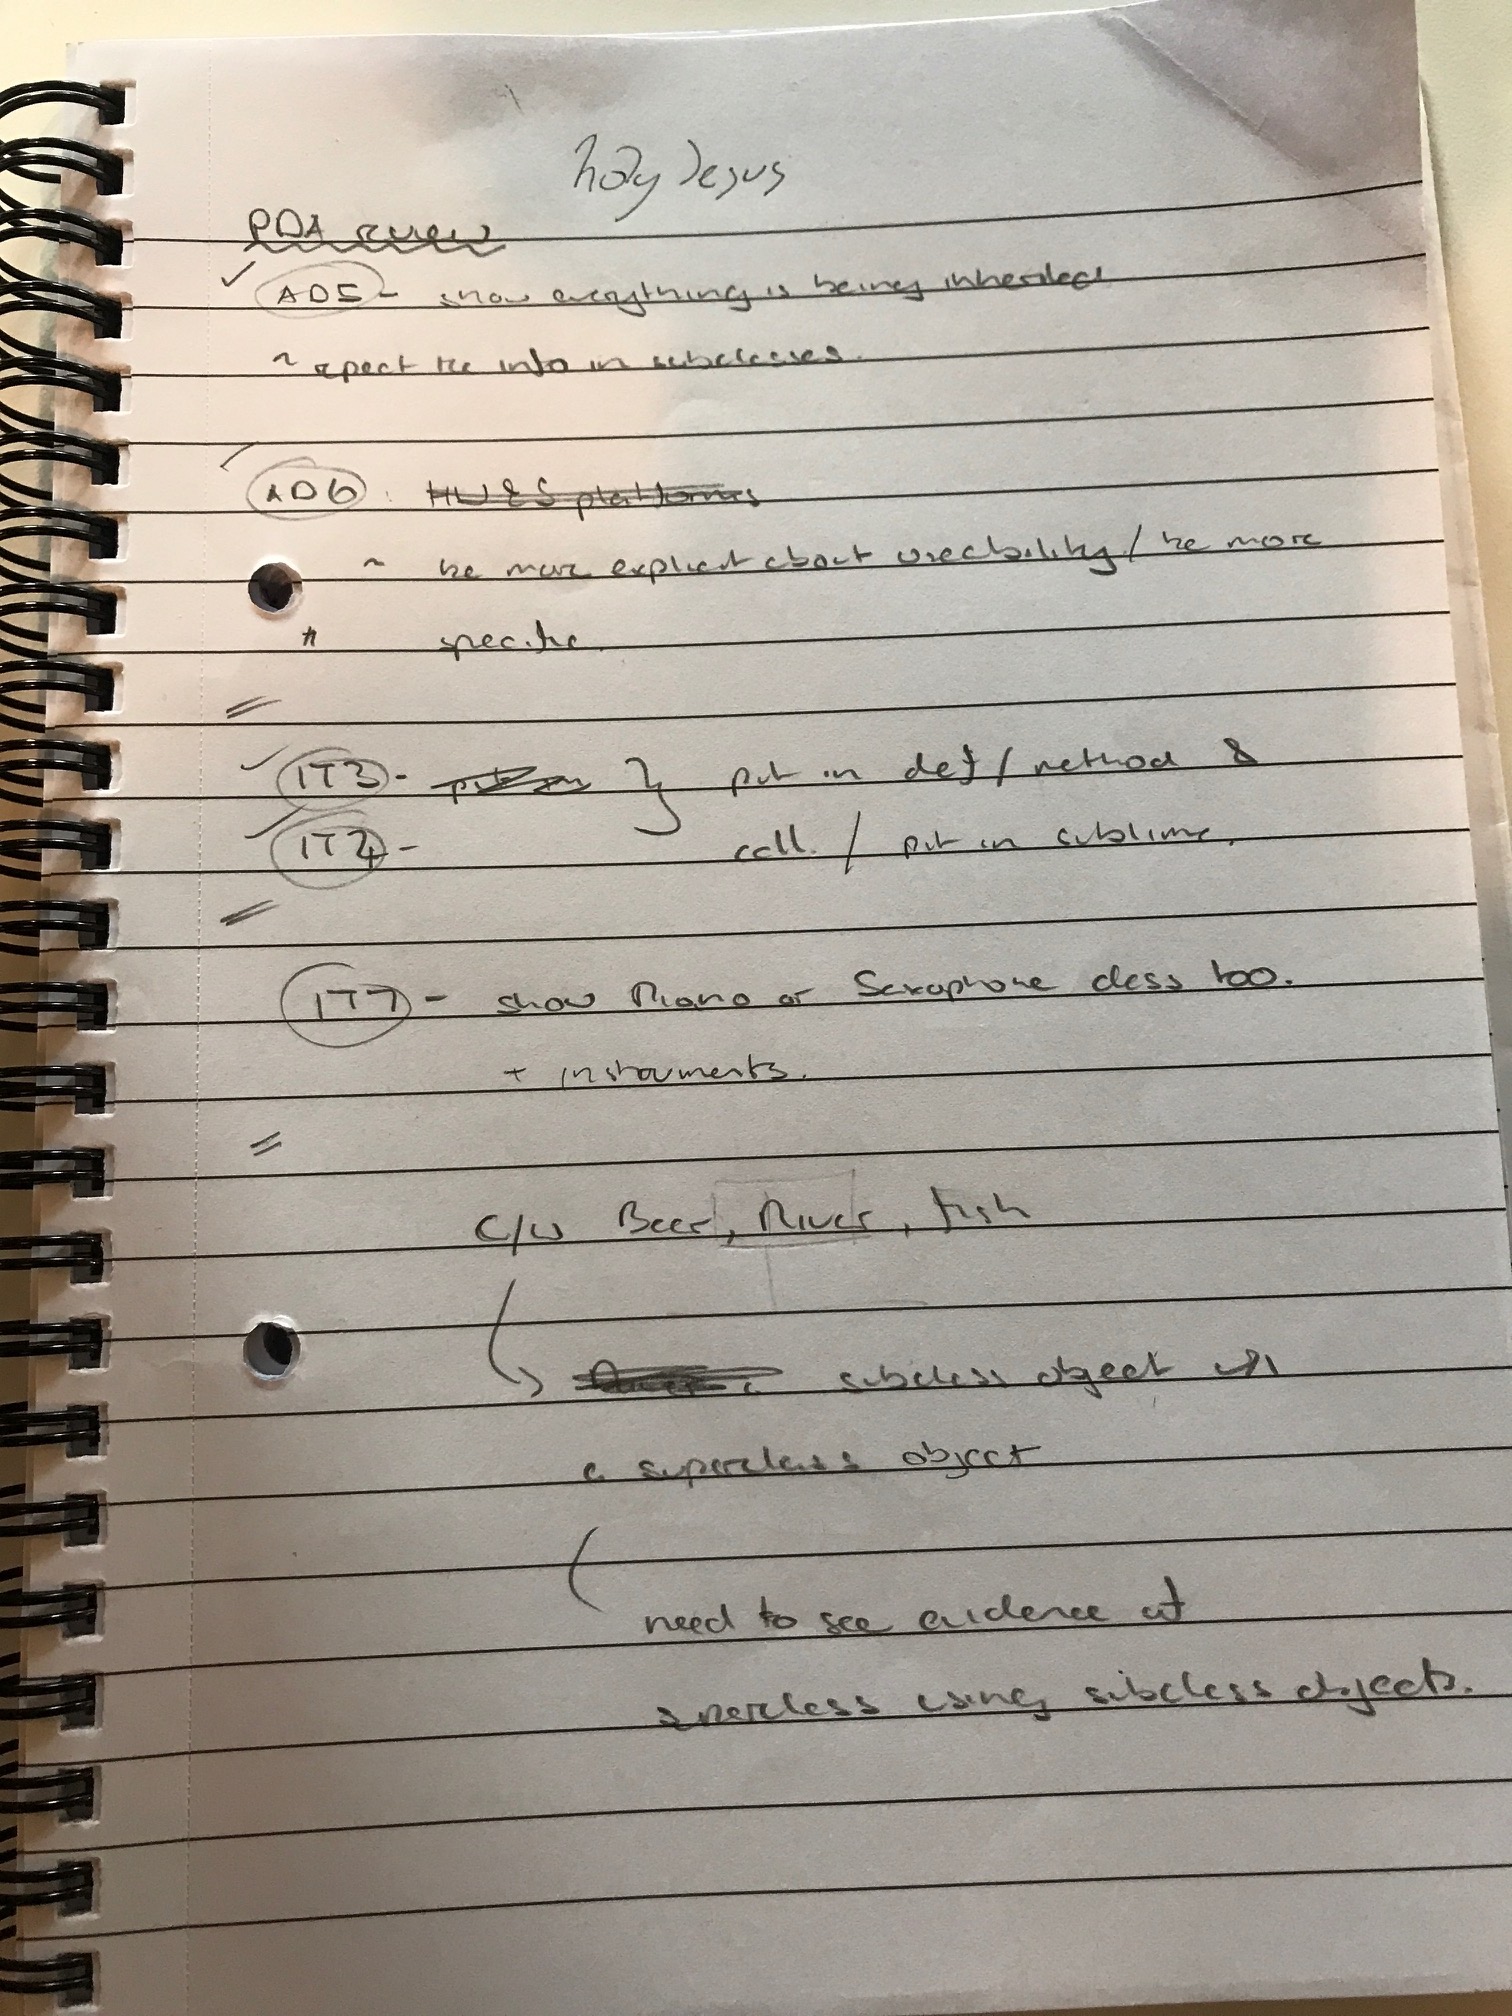 holy Jesus
PDA review
✓ AD5 - show everything is being inherited
~ repeat the info in subclasses.
AD6: HW & S platforms
~ be more explicit about useability / be more
* specific.
=
✓ IT3 - } put in def / method &
✓ IT4 - call. / put in sublime.
=
IT7 - show Piano or Saxophone class too.
+ instruments.
=
C/W Beer, River, fish
subclass object
a superclass object
need to see evidence of
superclass using subclass objects.